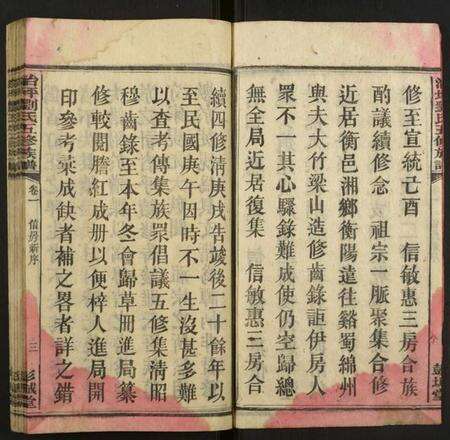 修至宣統己酉 信敏惠三房合族
酌議續修念 祖宗一脈聚集合修
近居衡邑湘鄉衡陽遠往谿蜀綿州
與夫大竹梁山造修齒錄詎伊房人
眾不一其心驟錄難成使仍空歸總
無全局近居復集 信敏惠三房合
續四修清庚戌告竣後二十餘年以
至民國庚午因時不一生沒甚多難
以查考傳集族眾倡議五修集清昭
穆齒錄至本年冬會歸草冊進局纂
修較閱謄紅成册以便梓人進局開
印參考乘成缺者補之畧者詳之錯
劉氏五修族譜
卷一
信房新序
三
彭城堂